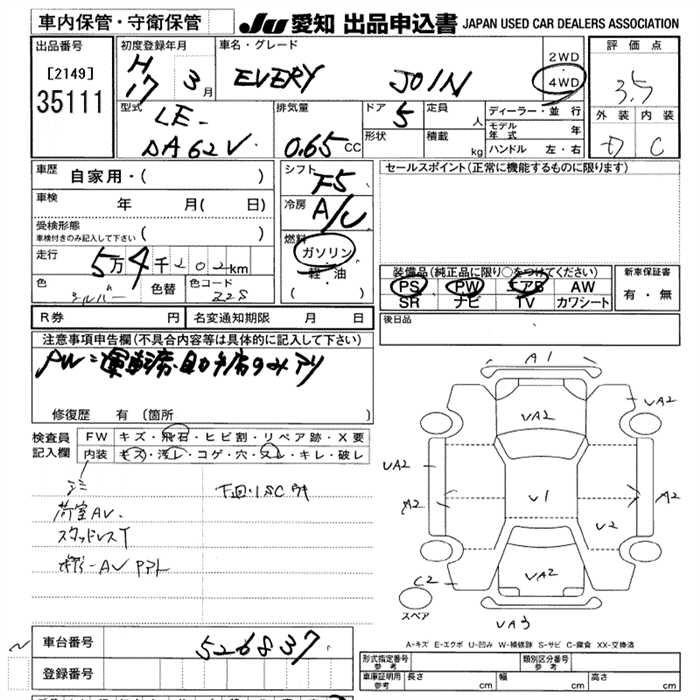 車内保管・守衛保管
JU 愛知 出品申込書 JAPAN USED CAR DEALERS ASSOCIATION
出品番号 初度登録年月 車名・グレード 2WD ・ 4WD 評価点
[2149] H17 3月 EVERY JOIN 3.5
35111
型式 排気量 ドア 定員 人 ディーラー・並行 外装 内装
LE-DA62V 0.65CC 5 モデル年式 年
形状 積載 kg ハンドル 左・右 C
車歴 自家用・( ) シフト F5 セールスポイント(正常に機能するものに限ります)
車検 年 月( 日) 冷房 A/C
受検形態
車検付きのみ記入して下さい ( ) 燃料 ガソリン・軽油 ( )
走行 5万4千202km 装備品(純正品に限り○をつけてください) 新車保証書
色 シルバー 色替 色コード Z2S PS PW エアB AW 有・無
SR ナビ TV カワシート
R券 円 名変通知期限 月 日 後日品
注意事項申告欄(不具合内容等は具体的に記入して下さい)
PW=運転席・助手席のみアリ
修復歴 有 (箇所 )
検査員記入欄 FW キズ・飛石・ヒビ割・リペア跡・X要
内装 キズ・汚レ・コゲ・穴・スレ・キレ・破レ
荷室AV.
スタッドレスT
A1
VA2
VA2
VA2
A2
V1
V2
A2
VA2
C2
スペア
VA3
A-キズ E-エクボ U-凹み W-補修跡 S-サビ C-腐食 XX-交換済
車台番号 526837
登録番号
形式指定番号 参考 類別区分番号 参考
車庫証明用 参考 長さ cm 幅 cm 高さ cm